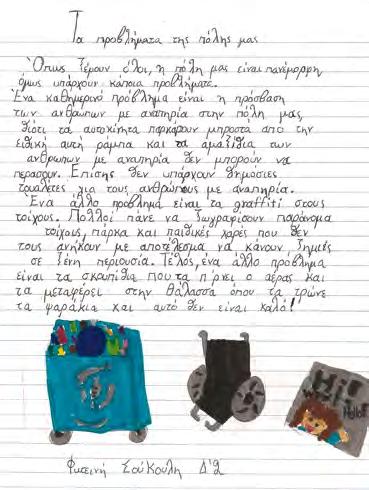 Τα προβλήματα της πόλης μας
Όπως ξέρουν όλοι, η πόλη μας είναι πανέμορφη
όμως υπάρχουν κάποια προβλήματα.
Ένα καθημερινό πρόβλημα είναι η πρόσβαση
των ανθρώπων με αναπηρία στην πόλη μας
διότι τα αυτοκίνητα παρκάρουν μπροστά από την
ειδική αυτή ράμπα και τα αμαξίδια των
ανθρώπων με αναπηρία δεν μπορούν να
περάσουν. Επίσης δεν υπάρχουν δημόσιες
τουαλέτες για τους ανθρώπους με αναπηρία.
Ένα άλλο πρόβλημα είναι τα graffiti στους
τοίχους. Πολλοί πάνε να ζωγραφίσουν παράνομα
τοίχους, πάρκα και παιδικές χαρές που δεν
τους ανήκουν με αποτέλεσμα να κάνουν ζημιές
σε ξένη περιουσία. Τέλος, ένα άλλο πρόβλημα
είναι τα σκουπίδια που τα παίρνει ο αέρας και
τα μεταφέρει στην θάλασσα όπου τα τρώνε
τα ψαράκια και αυτό δεν είναι καλό!
Hi!
Hello!
Φωτεινή Σούκουλη Δ'2